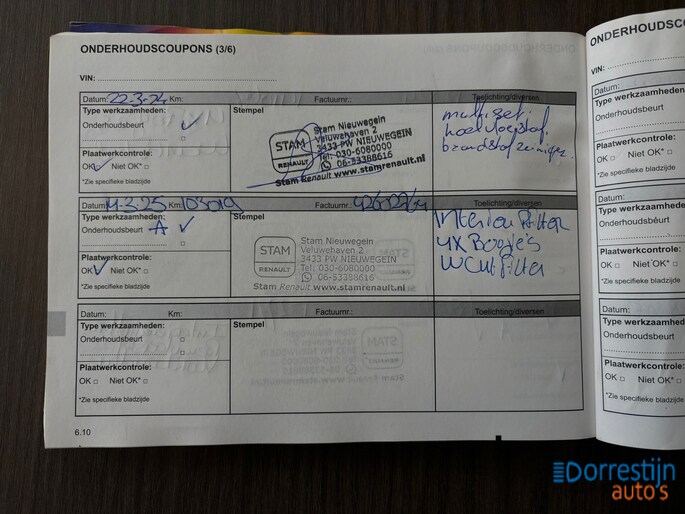 ONDERHOUDSCOUPONS (3/6)
VIN:
Datum: 22-3-24 Km: Factuurnr.: Toelichting/diversen
Type werkzaamheden: Stempel
Onderhoudsbeurt
Plaatwerkcontrole:
OK Niet OK*
*Zie specifieke bladzijde
STAM
RENAULT
Stam Nieuwegein
Veluwehaven 2
3433 PW NIEUWEGEIN
Tel: 030-6080000
06-53388616
Stam Renault www.stamrenault.nl
koelvloeistof.
Datum: 4-3-25 Km: 103019 Factuurnr.: Toelichting/diversen
Type werkzaamheden: Stempel
Onderhoudsbeurt A
Plaatwerkcontrole:
OK Niet OK*
*Zie specifieke bladzijde
STAM
RENAULT
Stam Nieuwegein
Veluwehaven 2
3433 PW NIEUWEGEIN
Tel: 030-6080000
06-53388616
Stam Renault www.stamrenault.nl
Interieur Filter
4x Bougie's
Lucht Filter
Datum: Km: Factuurnr.: Toelichting/diversen
Type werkzaamheden: Stempel
Onderhoudsbeurt
Plaatwerkcontrole:
OK Niet OK*
*Zie specifieke bladzijde
6.10
VIN:
Datum:
Type werkzaamheden:
Onderhoudsbeurt
Plaatwerkcontrole:
OK Niet OK*
*Zie specifieke bladzijde
Datum:
Type werkzaamheden:
Onderhoudsbeurt
Plaatwerkcontrole:
OK Niet OK*
*Zie specifieke bladzijde
Datum:
Type werkzaamheden:
Onderhoudsbeurt
Plaatwerkcontrole:
OK Niet OK*
*Zie specifieke bladzijde
Dorrestijn
auto's